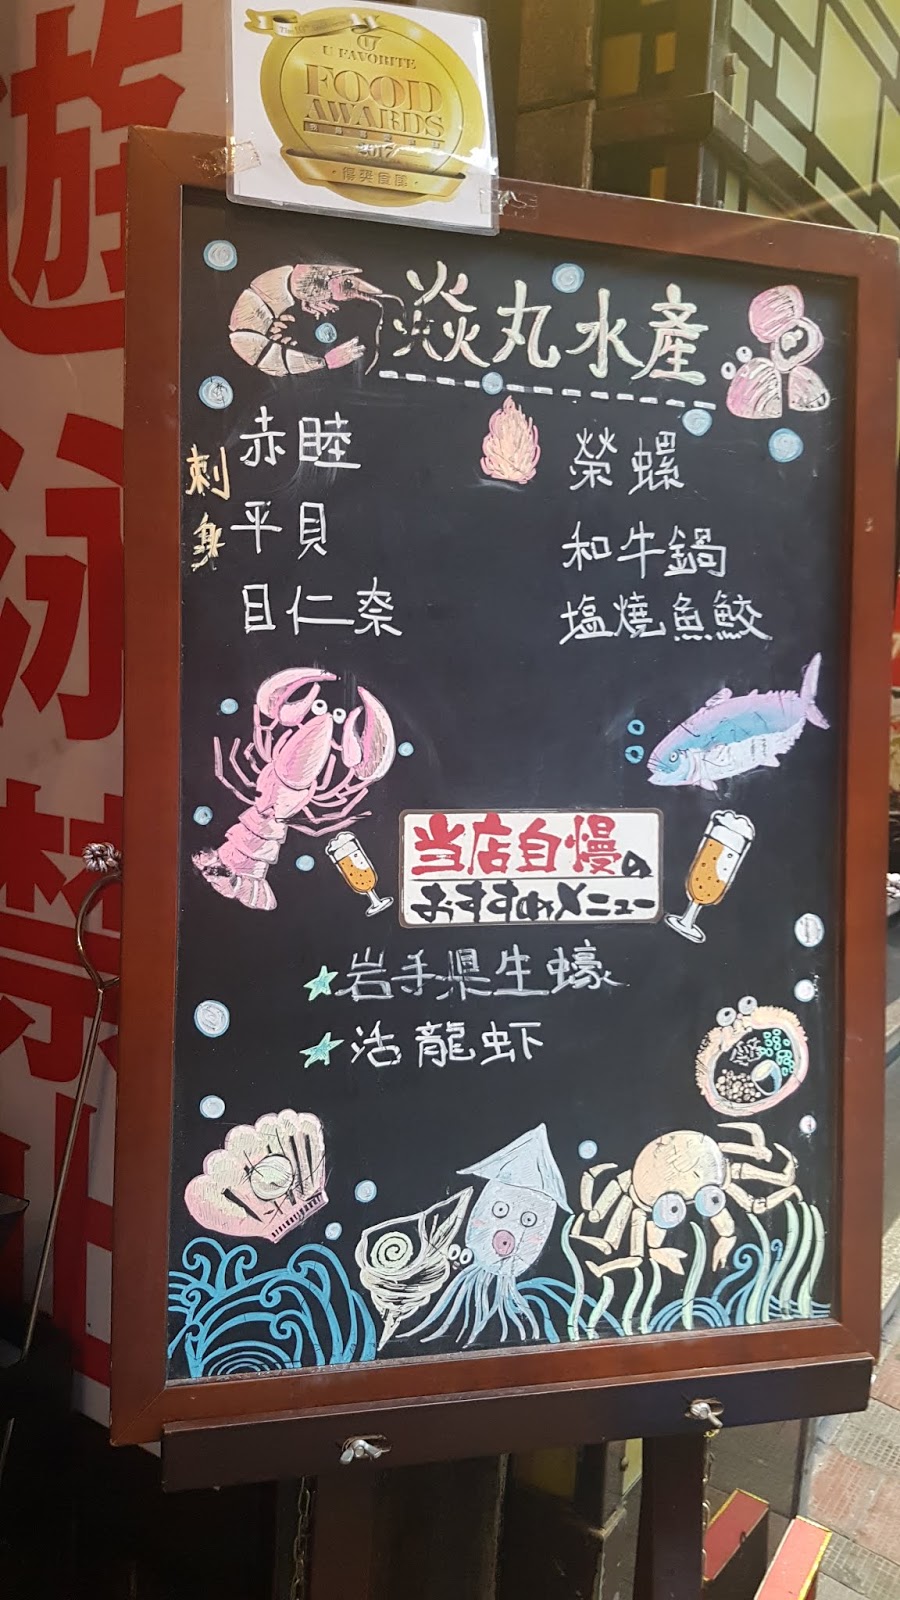 The 10th Anniversary
U FAVORITE
FOOD
AWARDS
2017
得獎食店
遊泳禁止
焱丸水產
刺身
赤睦
平貝
目仁奈
榮螺
和牛鍋
塩燒魚鮫
当店自慢の
おすすめメニュー
岩手県生蠔
活龍虾